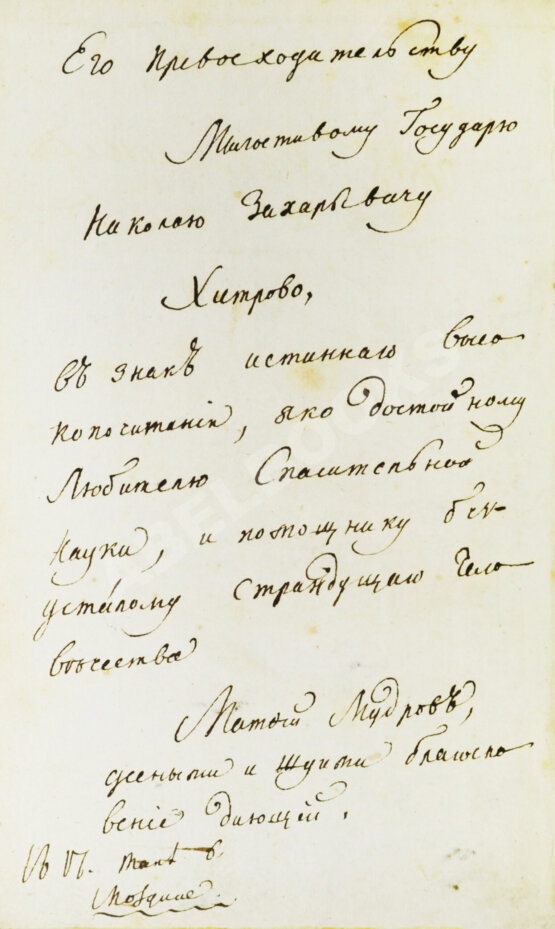 Его Превосходительству
Милостивому Государю
Николаю Захарьевичу
Хитрово,
въ знакъ истиннаго высо
копочитанія, яко достойному
Любителю Спасительной
Науки, и помощнику без-
усталому Страждущаго Чело
вѣчества
Матѳей Мудровъ,
и благосло
веніе дающій.
6.
Mosquae.